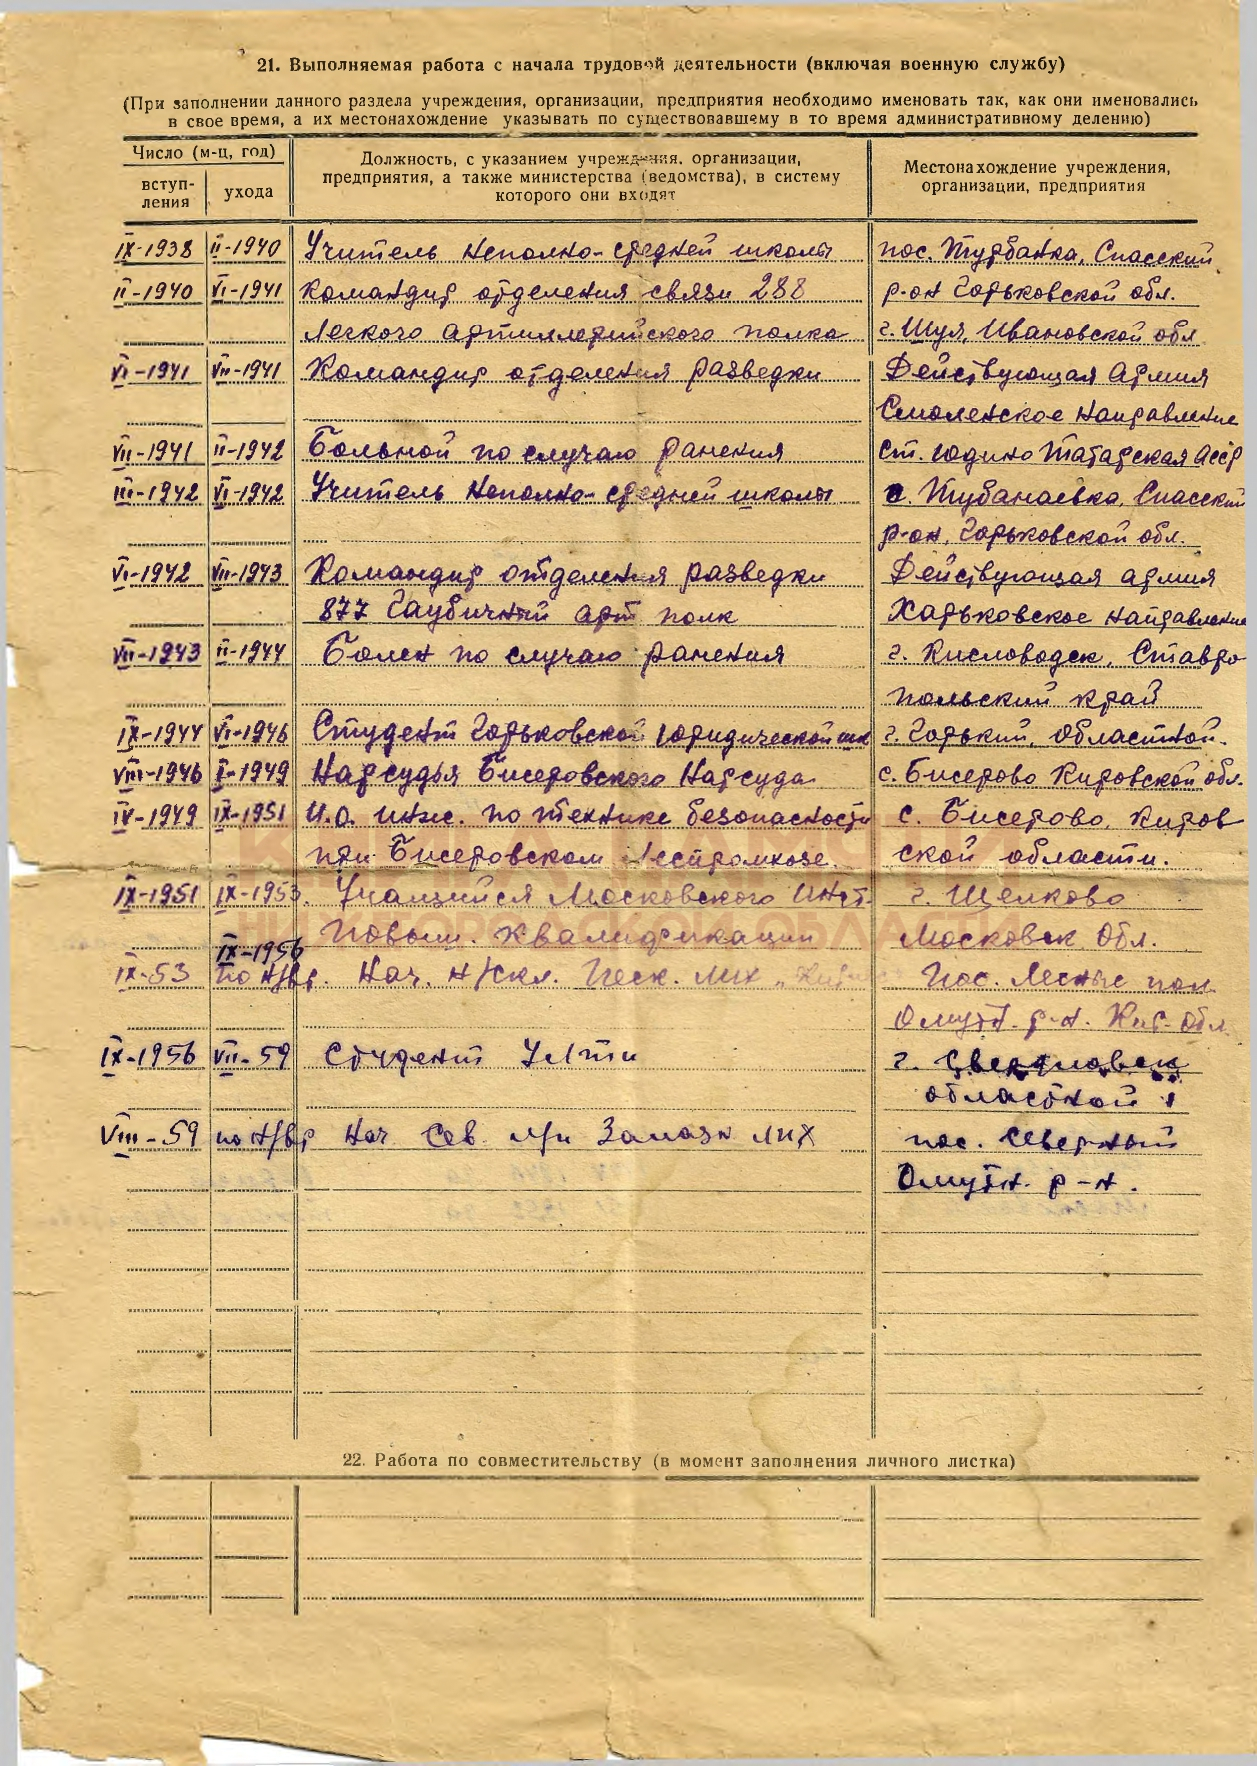 21. Выполняемая работа с начала трудовой деятельности (включая военную службу)
(При заполнении данного раздела учреждения, организации, предприятия необходимо именовать так, как они именовались
в свое время, а их местонахождение указывать по существовавшему в то время административному делению)
Число (м-ц, год)
вступ-
ления
ухода
Должность, с указанием учреждения, организации,
предприятия, а также министерства (ведомства), в систему
которого они входят
Местонахождение учреждения,
организации, предприятия
IX-1938 II-1940 Учитель Неполно-средней школы пос. Турбанка, Спасский
II-1940 VI-1941 Командир отделения связи 288 р-он Горьковской обл.
Легкого артиллерийского полка г. Шуя, Ивановской обл
VI-1941 VII-1941 Командир отделения разведки Действующая Армия
Смоленское направление
VII-1941 II-1942 Больной по случаю ранения ст. Юдино Татарская АССР
III-1942 VI-1942 Учитель Неполно-средней школы с. Тубанаевка, Спасский
р-он, Горьковской обл.
VI-1942 VII-1943 Командир отделения разведки Действующая армия
877 Гаубичный арт полк Харьковское направление
VII-1943 II-1944 Болен по случаю ранения г. Кисловодск, Ставро
польский край
IX-1944 VI-1946 Студент Горьковской юридической шк г. Горький, областной.
VIII-1946 I-1949 Нарсудья Бисеровского Нарсуда с. Бисерово Кировской обл.
IV-1949 IX-1951 И.о. инж. по технике безопасности с. Бисерово, Киров
при Бисеровском Леспромхозе. ской области.
IX-1951 IX-1953. Учащийся Московского Инст. г. Щелково
Повыш. квалификации Московск Обл.
IX-1956
IX-53 по н/вр. Нач. н/скл. Песк. ЛПХ Пос. Лесные пол
Омутн. р-н. Кир. Обл.
IX-1956 VII-59 Студент УЛТИ г. Свердловск
областной
VIII-59 по н/вр Нач Сев. л/п ЛПХ пос. Северный
Омутн. р-н.
22. Работа по совместительству (в момент заполнения личного листка)
НИЖЕГОРОДСКОЙ ОБЛАСТИ